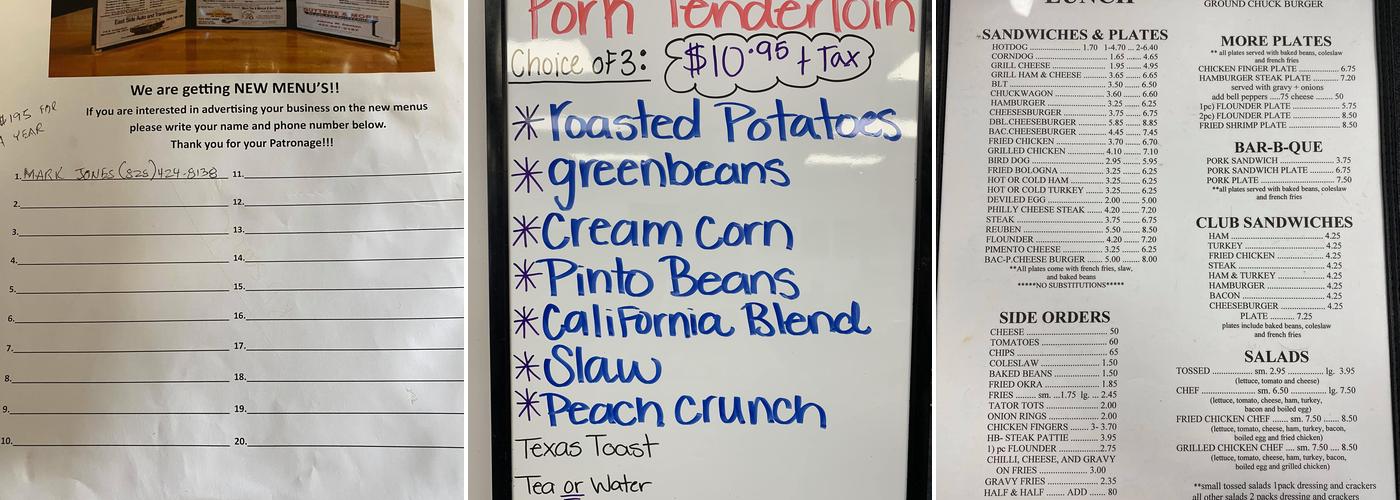 East Side Auto and Exp
BUTTERS & MORE
We are getting NEW MENU'S!!
If you are interested in advertising your business on the new menus
please write your name and phone number below.
Thank you for your Patronage!!!
$195 FOR
A YEAR
1. MARK JONES (825)424-8138
2.
3.
4.
5.
6.
7.
8.
9.
10.
11.
12.
13.
14.
15.
16.
17.
18.
19.
20.
Porn Tenderloin
Choice of 3:
$10.95 + Tax
* roasted Potatoes
* greenbeans
* Cream Corn
* Pinto Beans
* California Blend
* Slaw
* Peach Crunch
Texas Toast
Tea or Water
LUNCH
SANDWICHES & PLATES
HOTDOG ........ 1.70 1-4.70 ... 2-6.40
CORNDOG ........ 1.65 ...... 4.65
GRILL CHEESE ........ 1.95 ...... 4.95
GRILL HAM & CHEESE ........ 3.65 ...... 6.65
BLT ........ 3.50 ...... 6.50
CHUCKWAGON ........ 3.60 ...... 6.60
HAMBURGER ........ 3.25 ...... 6.25
CHEESESBURGER ........ 3.75 ...... 6.75
DBL.CHEESEBURGER ........ 5.85 ...... 8.85
BAC.CHEESEBURGER ........ 4.45 ...... 7.45
FRIED CHICKEN ........ 3.70 ...... 6.70
GRILLED CHICKEN ........ 4.10 ...... 7.10
BIRD DOG ........ 2.95 ...... 5.95
FRIED BOLOGNA ........ 3.25 ...... 6.25
HOT OR COLD HAM ........ 3.25 ...... 6.25
HOT OR COLD TURKEY ........ 3.25 ...... 6.25
DEVILED EGG ........ 2.00 ...... 5.00
PHILLY CHEESE STEAK ........ 4.20 ...... 7.20
STEAK ........ 3.75 ...... 6.75
REUBEN ........ 5.50 ...... 8.50
FLOUNDER ........ 4.20 ...... 7.20
PIMENTO CHEESE ........ 3.25 ...... 6.25
BAC-P.CHEESE BURGER ........ 5.00 ...... 8.00
**All plates come with french fries, slaw,
and baked beans
*****NO SUBSTITUTIONS*****
SIDE ORDERS
CHEESE ........ 50
TOMATOES ........ 60
CHIPS ........ 65
COLESLAW ........ 1.50
BAKED BEANS ........ 1.50
FRIED OKRA ........ 1.85
FRIES ...... sm. ...1.75 lg. ... 2.45
TATOR TOTS ........ 2.00
ONION RINGS ........ 2.00
CHICKEN FINGERS ........ 3- 3.70
HB- STEAK PATTIE ........ 3.95
1) pc FLOUNDER ........ 2.75
CHILLI, CHEESE, AND GRAVY
ON FRIES ........ 3.00
GRAVY FRIES ........ 2.35
HALF & HALF ........ ADD ...... 80
GROUND CHUCK BURGER
MORE PLATES
** all plates served with baked beans, coleslaw
and french fries
CHICKEN FINGER PLATE ........ 6.75
HAMBURGER STEAK PLATE ........ 7.20
served with gravy + onions
add bell peppers .....75 cheese ...... 50
1pc) FLOUNDER PLATE ........ 5.75
2pc) FLOUNDER PLATE ........ 8.50
FRIED SHRIMP PLATE ........ 8.50
BAR-B-QUE
PORK SANDWICH ........ 3.75
PORK SANDWICH PLATE ........ 6.75
PORK PLATE ........ 7.50
**all plates served with baked beans, coleslaw
and french fries
CLUB SANDWICHES
HAM ........ 4.25
TURKEY ........ 4.25
FRIED CHICKEN ........ 4.25
STEAK ........ 4.25
HAM & TURKEY ........ 4.25
HAMBURGER ........ 4.25
BACON ........ 4.25
CHEESEBURGER ........ 4.25
PLATE ........ 7.25
plates include baked beans, coleslaw
and french fries
SALADS
TOSSED ........ sm. 2.95 ........ lg. 3.95
(lettuce, tomato and cheese)
CHEF ........ sm. 6.50 ........ lg. 7.50
(lettuce, tomato, cheese, ham, turkey,
bacon and boiled egg)
FRIED CHICKEN CHEF ...... sm. 7.50 ...... 8.50
(lettuce, tomato, cheese, ham, turkey, bacon,
boiled egg and fried chicken)
GRILLED CHICKEN CHEF .... sm. 7.50 .... 8.50
(lettuce, tomato, cheese, ham, turkey, bacon,
boiled egg and grilled chicken)
**small tossed salads 1pack dressing and crackers
all other salads 2 packs dressing and crackers